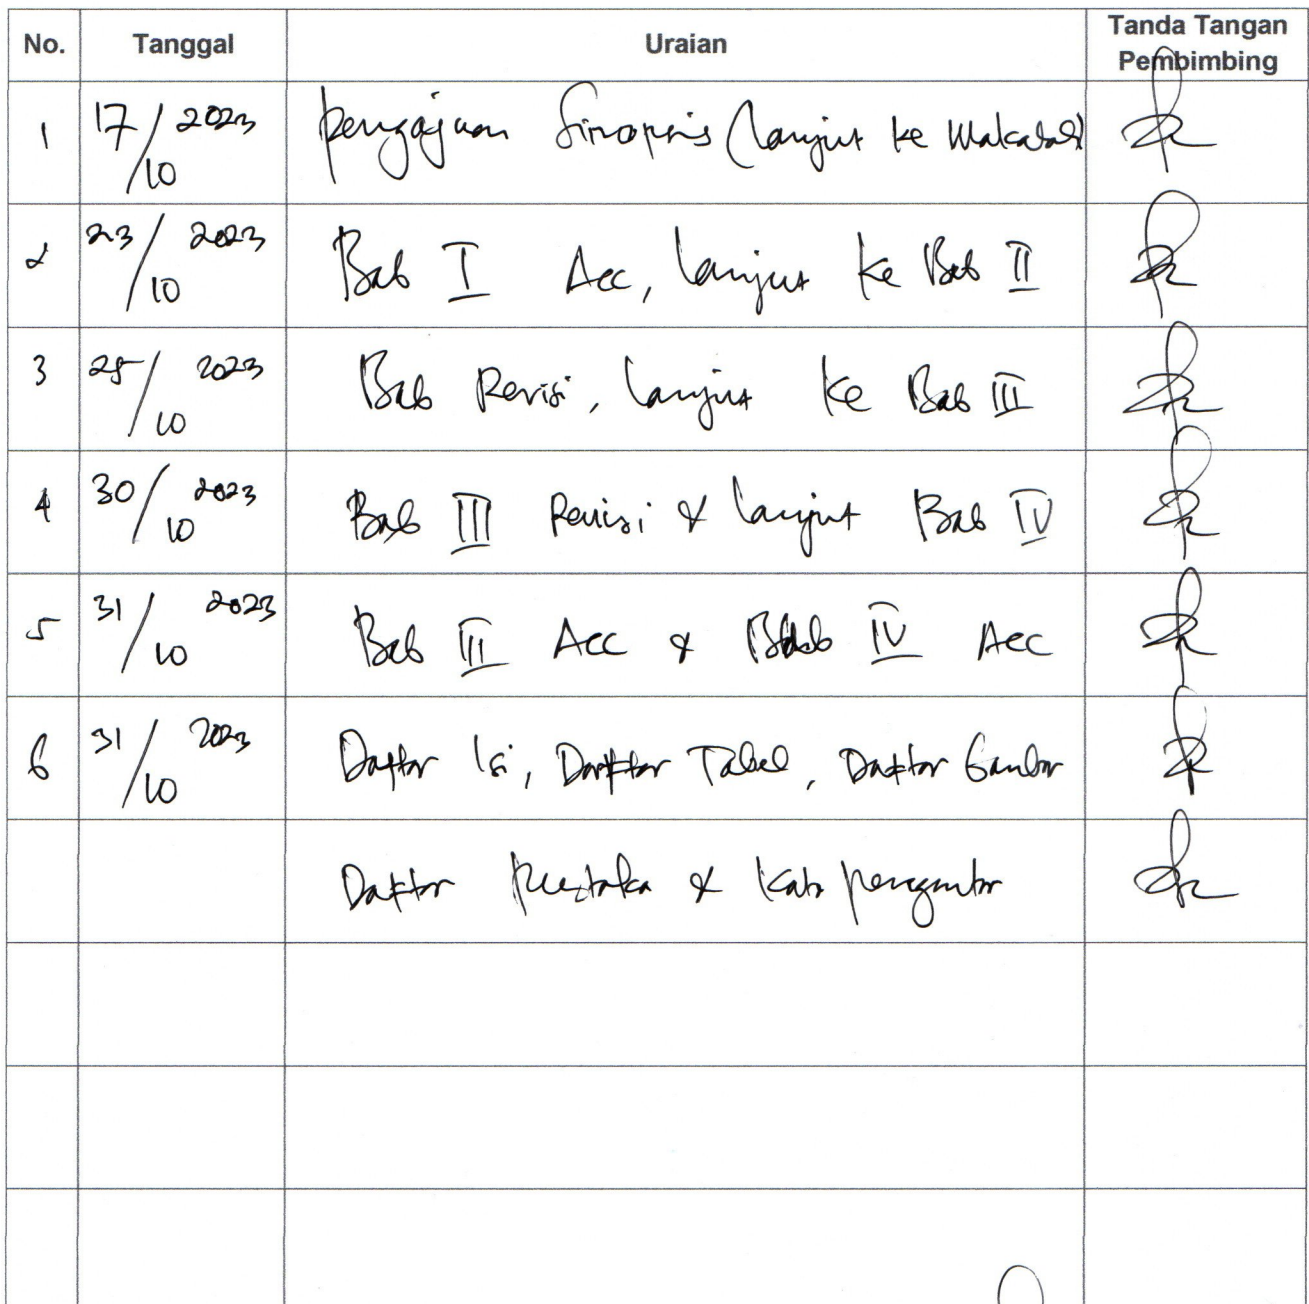 No. Tanggal Uraian Tanda Tangan Pembimbing
1 17/10 2023 Pengajuan Sinopsis (lanjut ke Makalah)
2 23/10 2023 Bab I Acc, lanjut ke Bab II
3 25/10 2023 Bab Revisi, lanjut ke Bab III
4 30/10 2023 Bab III Revisi & lanjut Bab IV
5 31/10 2023 Bab III Acc & Bab IV Acc
6 31/10 2023 Daftar Isi, Daftar Tabel, Daftar Gambar
Daftar Pustaka & Kata pengantar